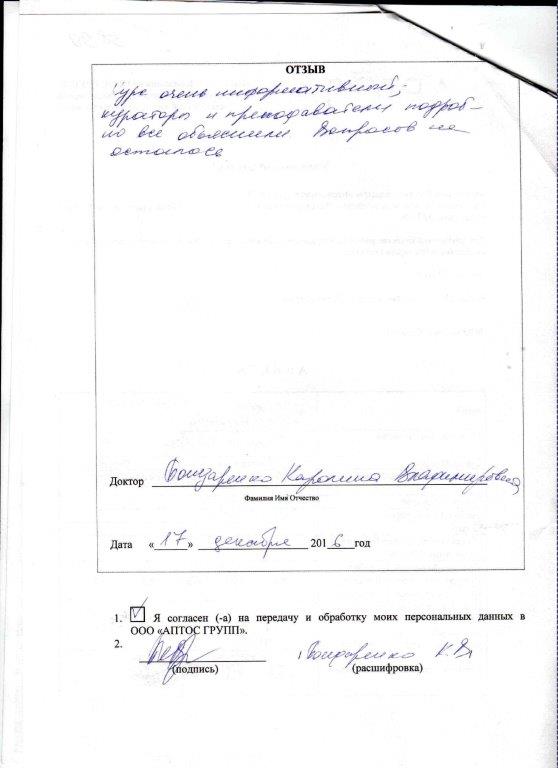 ОТЗЫВ
Курс очень информативный,
кураторы и преподаватели подроб-
но все объяснили Вопросов не
осталось
Доктор Бондаренко Каролина Владимировна
Фамилия Имя Отчество
Дата «17» декабря 2016 год
1. Я согласен (-а) на передачу и обработку моих персональных данных в
ООО «АПТОС ГРУПП».
2. Бондаренко К.В.
(подпись) (расшифровка)